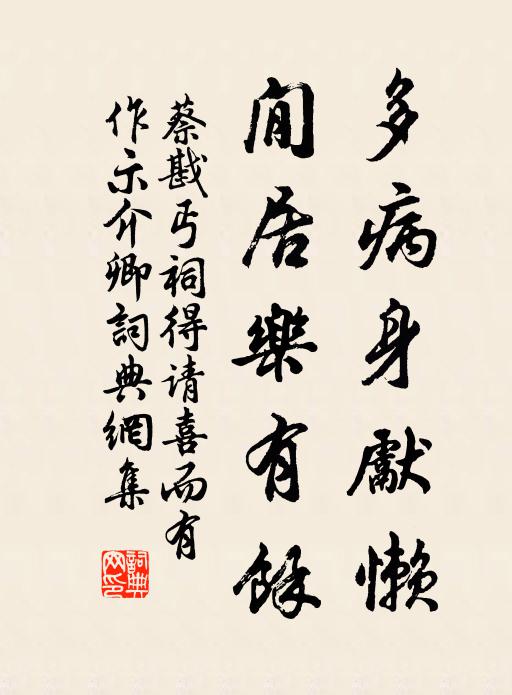 多病身獻懶
閒居樂有餘
蔡戡丐祠得请喜而有
作示介卿詞典網集
詞典
网印